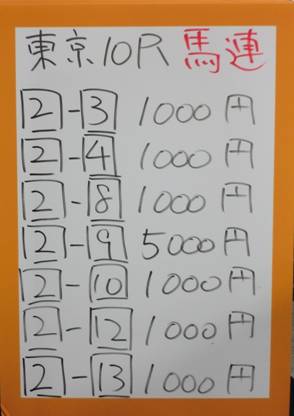 東京10R 馬連
2-3 1000円
2-4 1000円
2-8 1000円
2-9 5000円
2-10 1000円
2-12 1000円
2-13 1000円